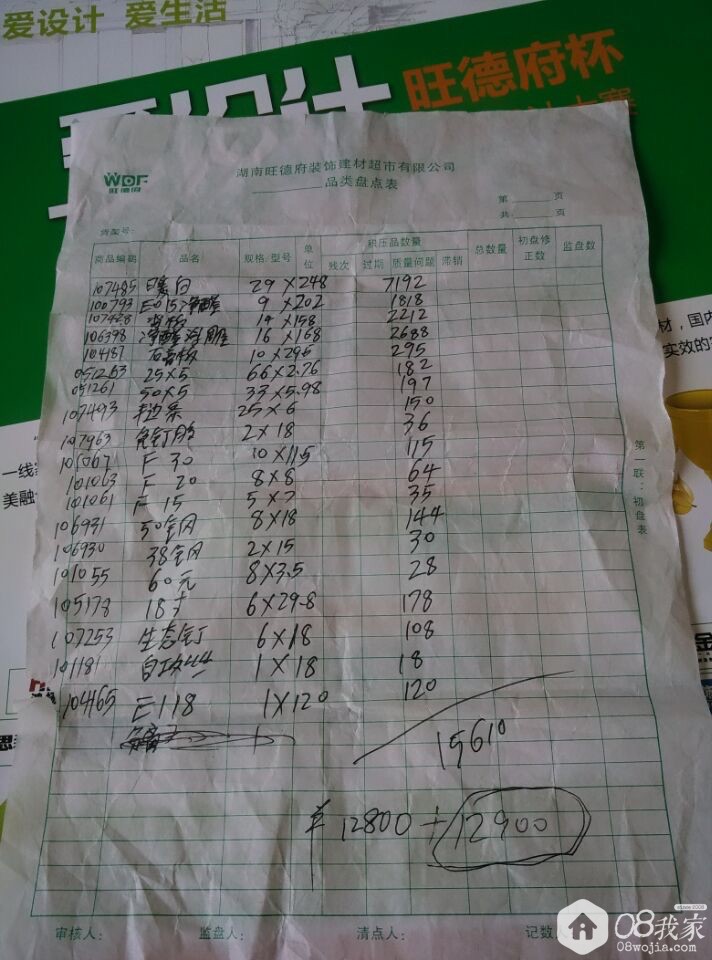 爱设计 爱生活
旺德府杯
WDF
旺德府
湖南旺德府装饰建材超市有限公司
品类盘点表
第 页
共 页
货架号:
商品编码 品名 规格/型号 单位 积压品数量 总数量 初盘修正数 监盘数
残次 过期 质量问题 滞销
107485 29×248 7192
100793 E015净醛 9×202 1818
107428 14×158 2212
106398 16×168 2688
104187 石膏板 10×29.5 295
051263 25×5 66×2.76 182
051261 50×5 33×5.98 197
107493 25×6 150
107963 免钉胶 2×18 36
F 30 10×11.5 115
101063 F 20 8×8 64
101061 F 15 5×7 35
106931 50钢 8×18 144
106930 38钢 2×15 30
101055 60元 8×3.5 28
105178 18寸 6×29.8 178
107253 生态钉 6×18 108
101181 自攻丝 1×18 18
104165 E118 1×120 120
15610
12800+12900
第一联:初盘表
审核人: 监盘人: 清点人: 记数
材,国内
实效的
一线
美融
08我家
08wojia.com